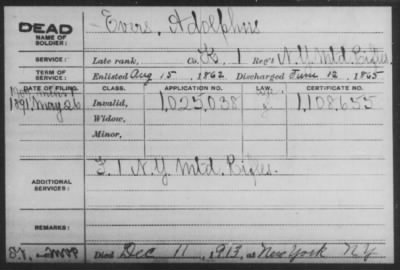 DEAD
NAME OF SOLDIER:
Evers, Adolphus
SERVICE:
Late rank, Co. K, 1 Reg't N.Y. Mtd. Rifles.
TERM OF SERVICE:
Enlisted Aug 15, 1862 Discharged June 12, 1865
DATE OF FILING. CLASS. APPLICATION NO. LAW. CERTIFICATE NO.
1891, May 26 Invalid, 1,025,038 1,108,655
Widow,
Minor,
ADDITIONAL SERVICES:
F. 1 N.Y. Mtd. Rifles.
REMARKS:
Died Dec 11, 1913, at New York NY